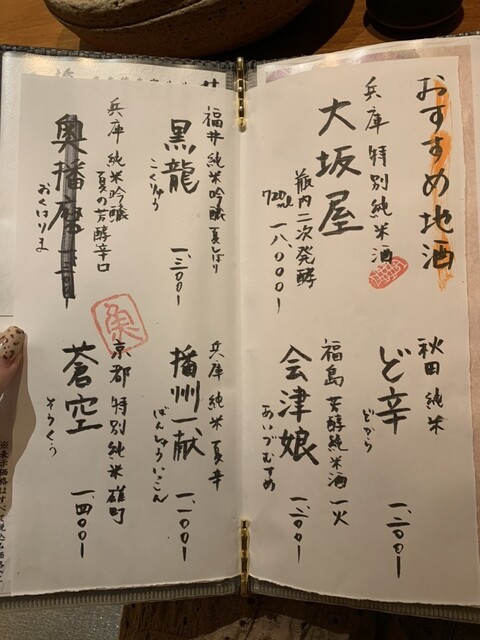 おすすめ地酒
兵庫 特別純米酒
大坂屋
瓶内二次発酵
720ml 一八、〇〇〇ー
秋田 純米
ど辛
どから
一、二〇〇ー
福島 芳醇純米酒 一火
会津娘
あいづむすめ
一、二〇〇ー
福井 純米吟醸 夏しぼり
黒龍
こくりゅう
一、三〇〇ー
兵庫 純米吟醸
夏の芳醇辛口
奥播磨
おくはりま
兵庫 純米 夏辛
播州一献
ばんしゅういっこん
一、一〇〇ー
京都 特別純米 雄町
蒼空
そうくう
一、四〇〇ー
魚
※表示価格はすべて税込